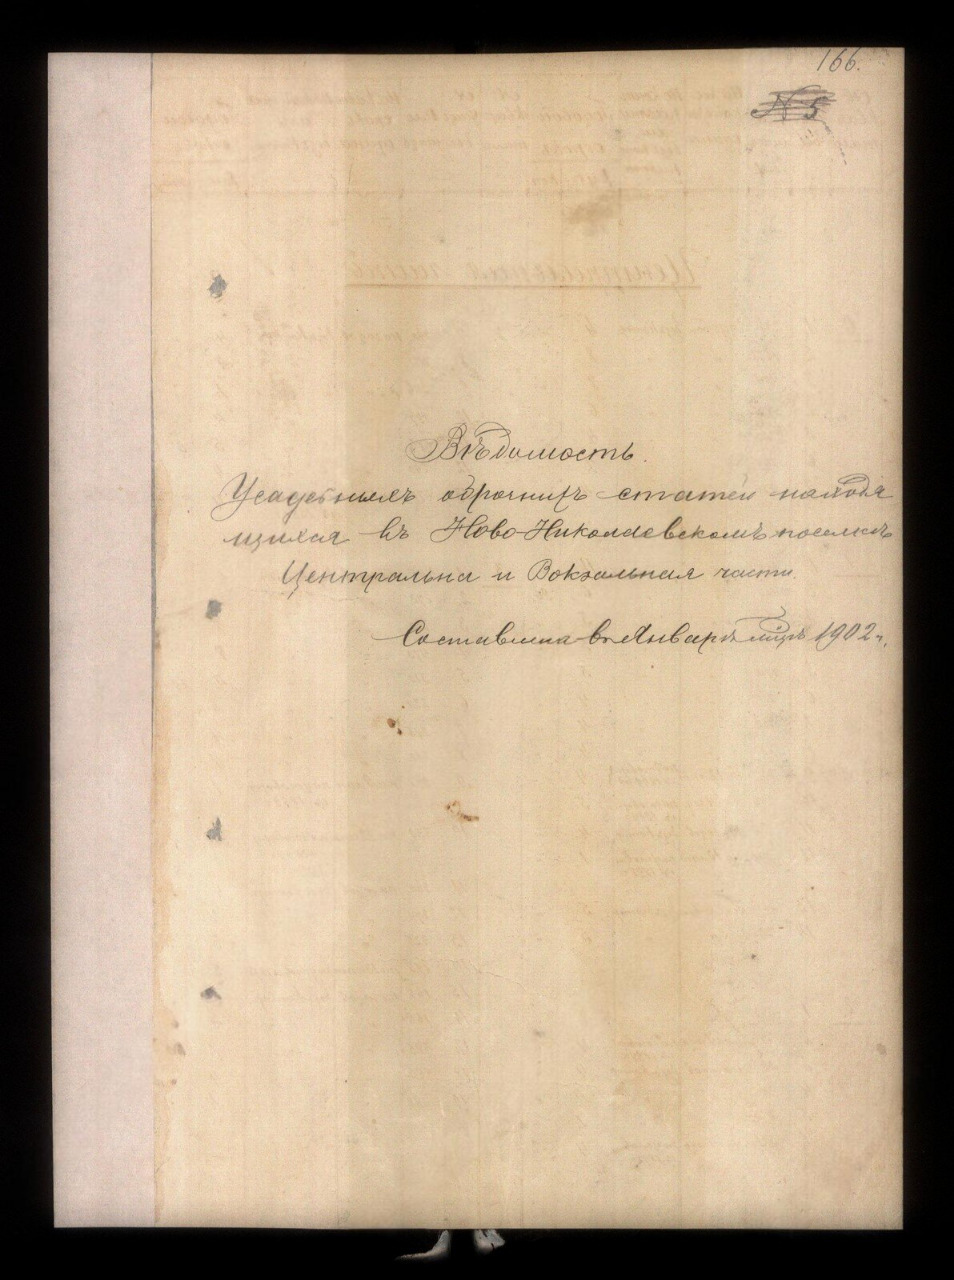 166.
№ 5
Вѣдомость.
Усадебныхъ оброчныхъ статей находя
щихся въ Ново-Николаевскомъ поселкѣ
Центральна и Вокзальная части.
Составлена въ Январѣ мцѣ 1902 г.